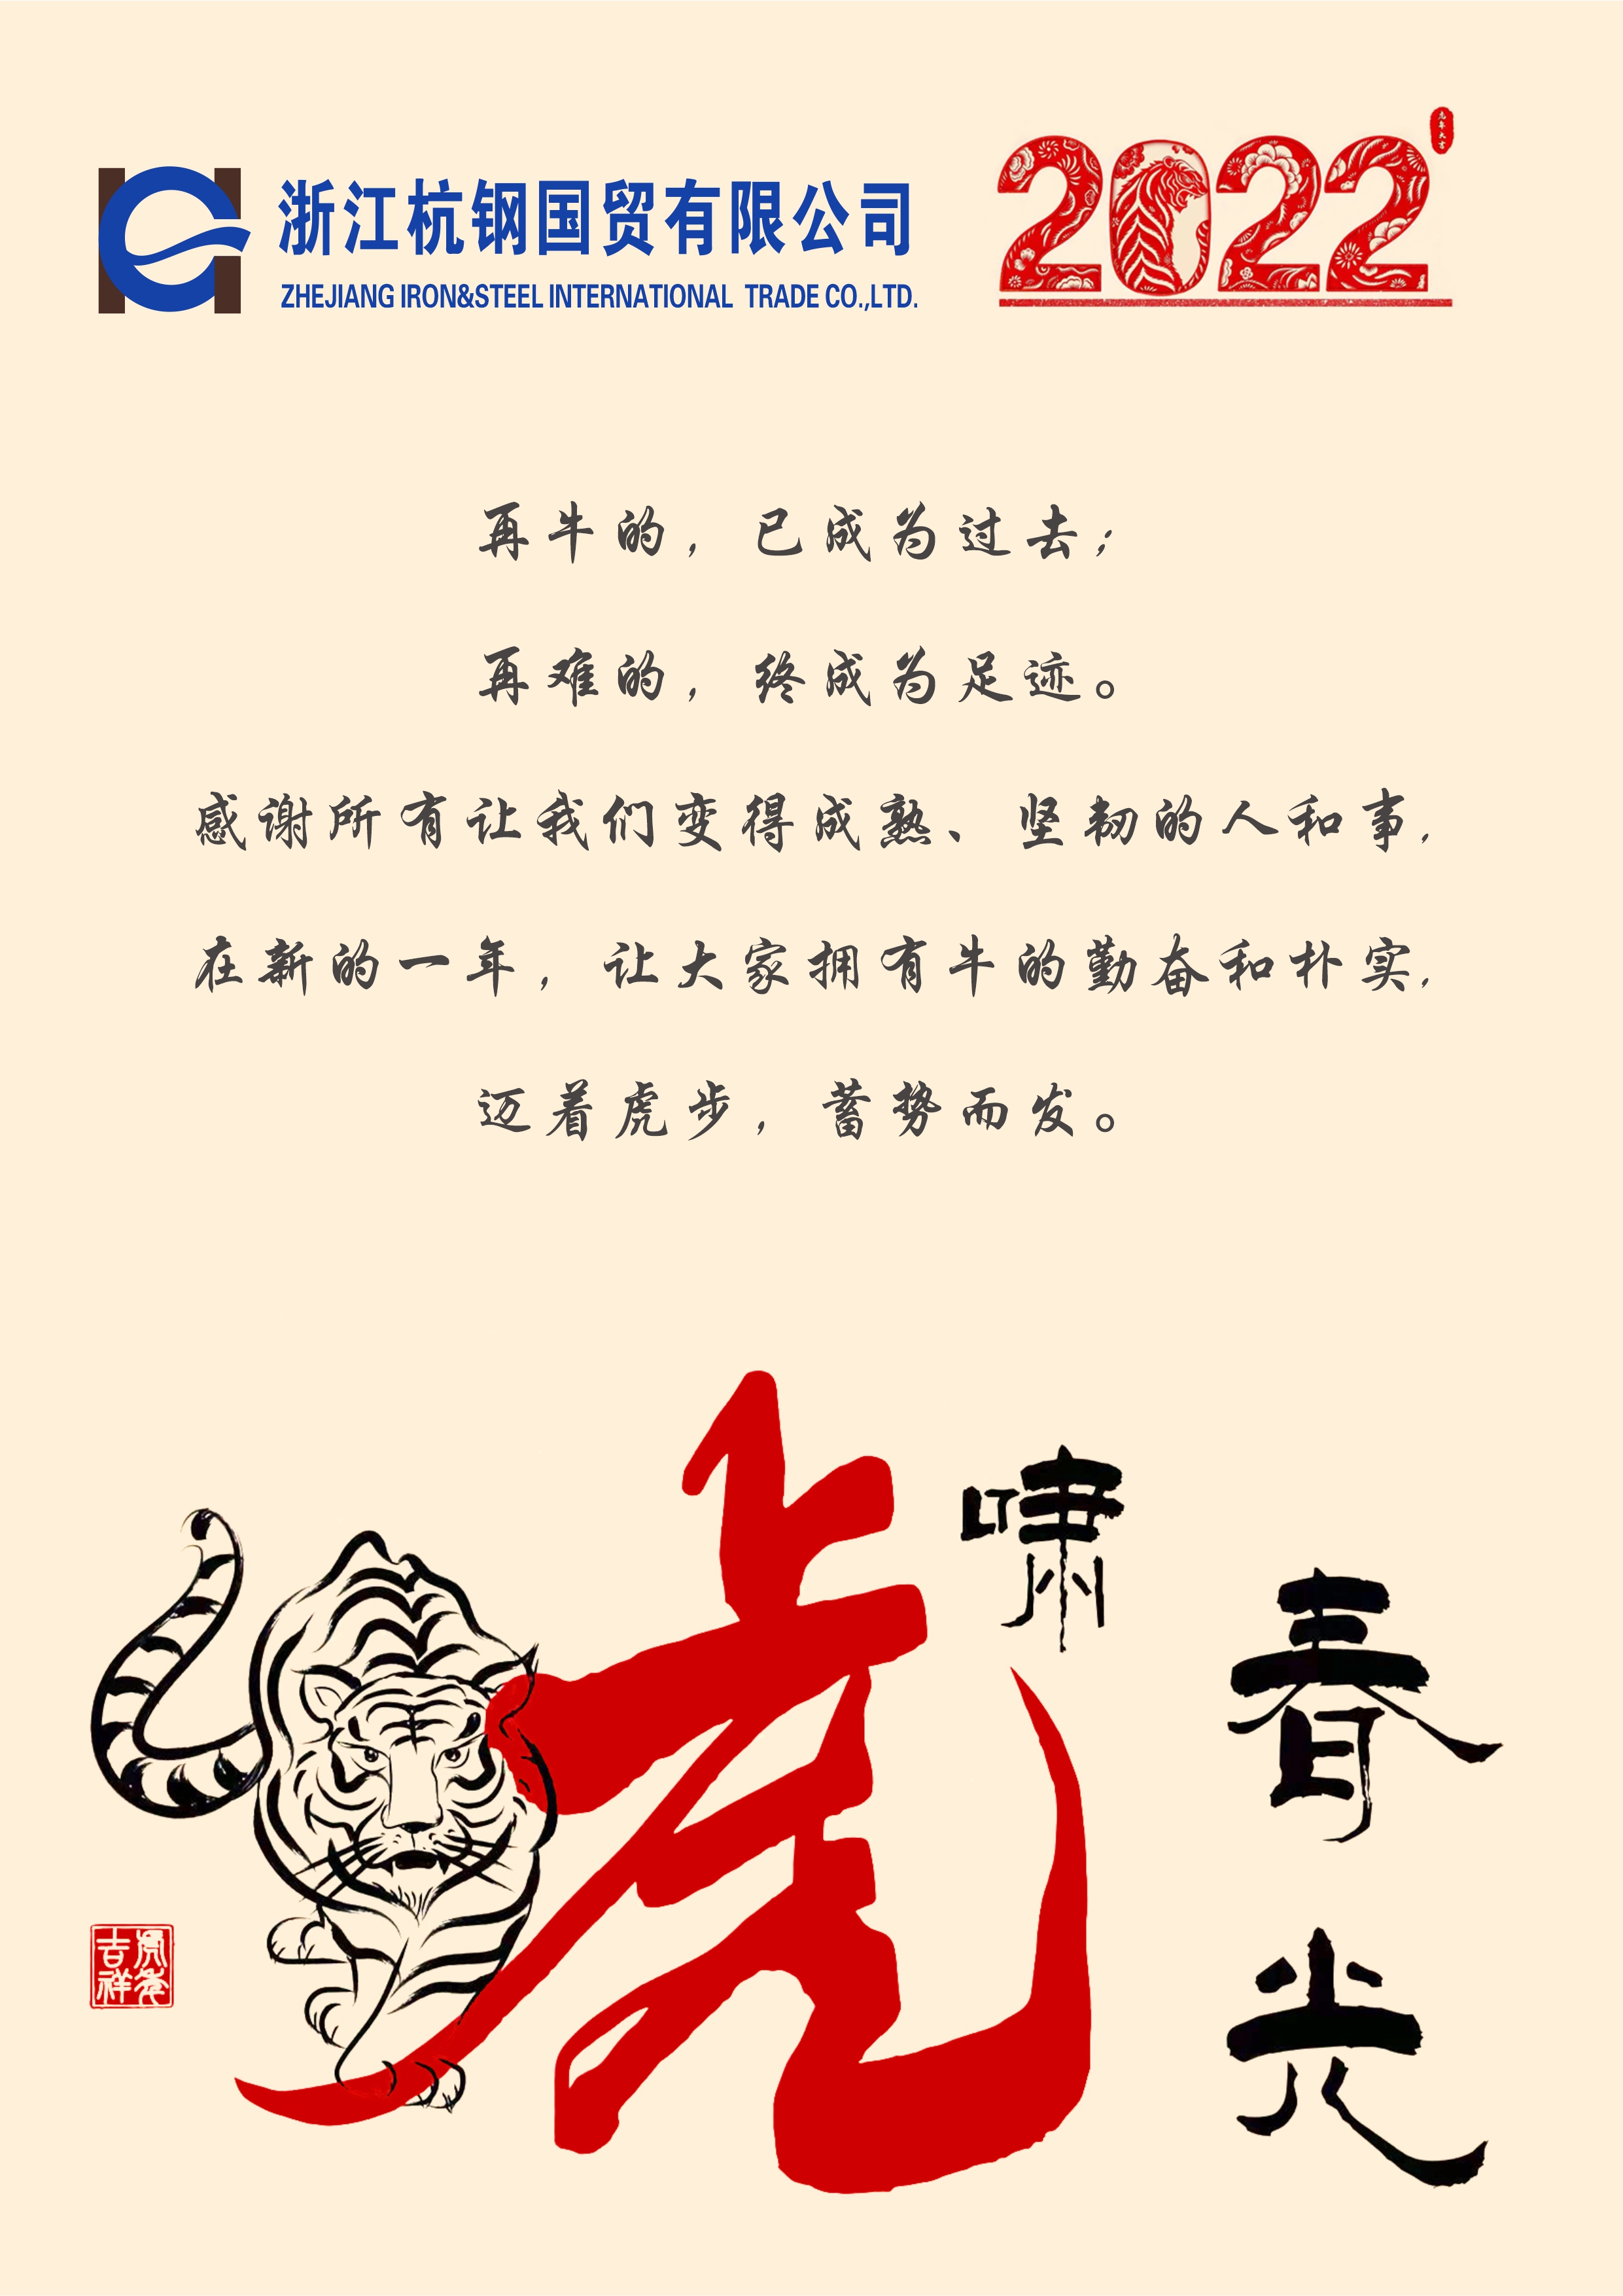 浙江杭钢国贸有限公司
ZHEJIANG IRON&STEEL INTERNATIONAL TRADE CO.,LTD.
2022
再牛的，已成为过去；
再难的，终成为足迹。
感谢所有让我们变得成熟、坚韧的人和事，
在新的一年，让大家拥有牛的勤奋和朴实，
迈着虎步，蓄势而发。
虎
啸
春
光
虎年
吉祥